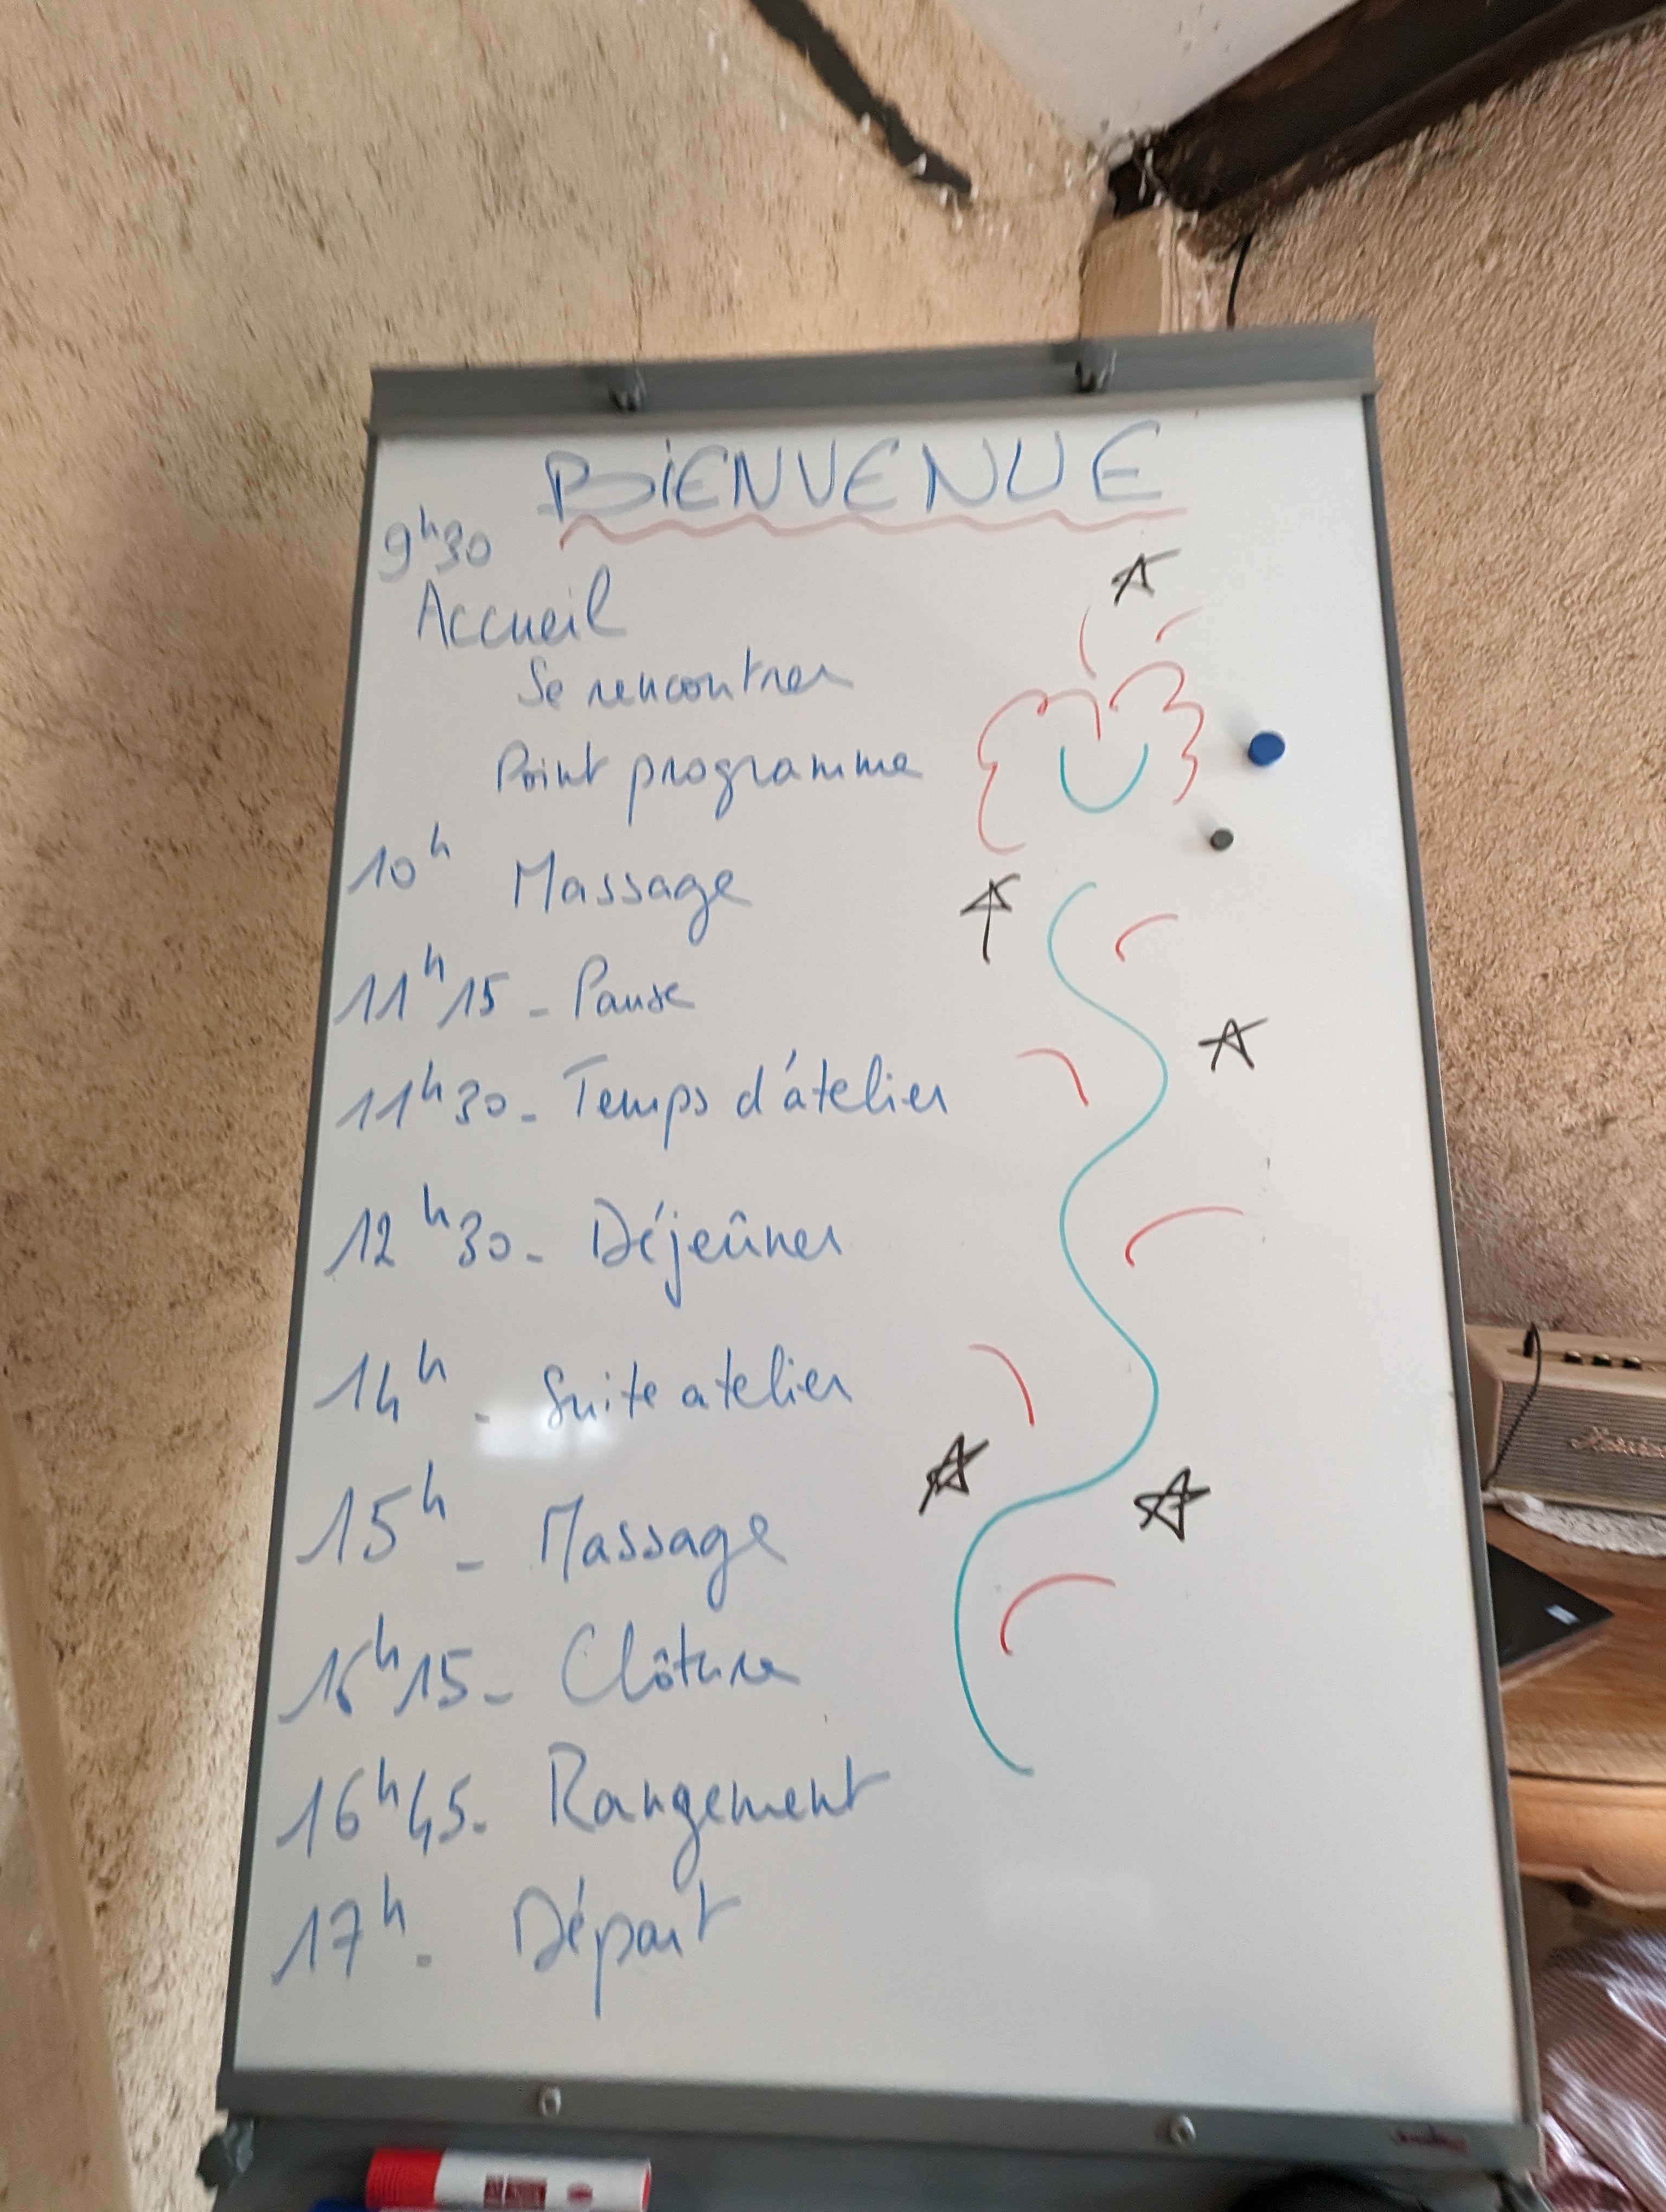 BiENVENUE
9h30
Accueil
Se rencontrer
Point programme
10h Massage
11h15 - Pause
11h30 - Temps d'atelier
12h30 - Déjeûner
14h - Suite atelier
15h - Massage
16h15 - Clôture
16h45 - Rangement
17h - Départ